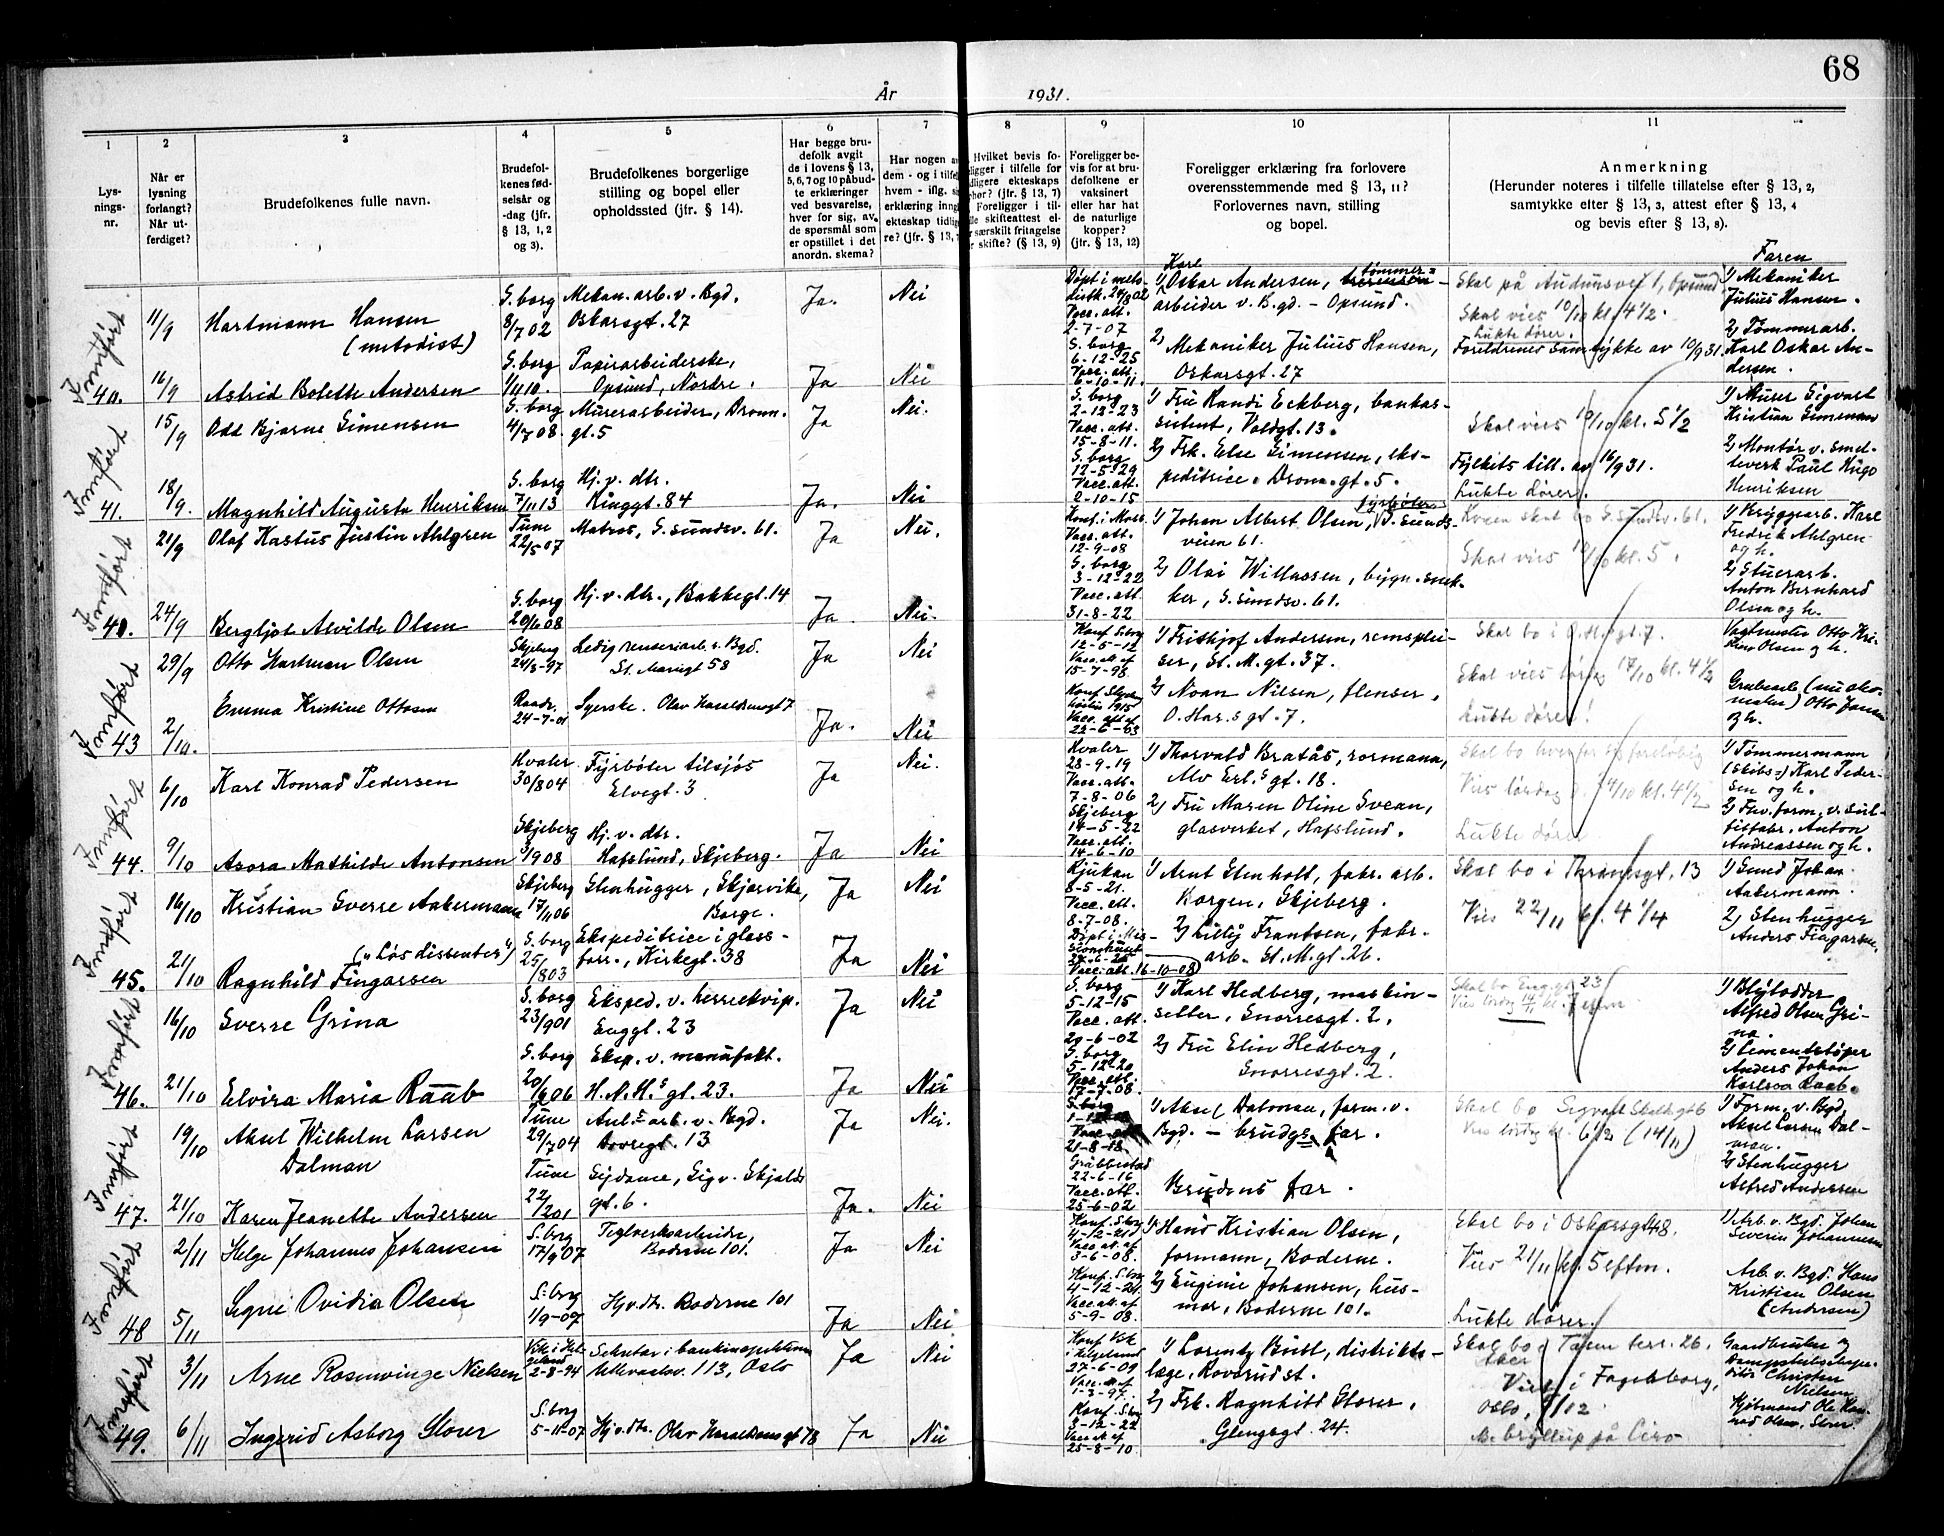 68
År 1931.
1 2 3 4 5 6 7 8 9 10 11
Lysningsnr.
Når er lysning forlangt? Når utferdiget?
Brudefolkenes fulle navn.
Brudefolkenes fødselsår og -dag (jfr. § 13, 1, 2 og 3).
Brudefolkenes borgerlige stilling og bopel eller opholdssted (jfr. § 14).
Har begge brudefolk avgit de i lovens § 13, 5, 6, 7 og 10 påbudte erklæringer ved besvarelse, hver for sig, av de spørsmål som er opstillet i det anordn. skema?
Har nogen av dem - og i tilfelle hvem - iflg. si erklæring inngå ekteskap tidlig re? (jfr. § 13,
Hvilket bevis fo- ligger i tilfelle for dligere ekteskaps hør? (jfr. § 13, 7) Foreligger i til- lle skifteattest el- r særskilt fritagelse r skifte? (§ 13, 9)
Foreligger bevis for at brudefolkene er vaksinert eller har hat de naturlige kopper? (jfr. § 13, 12)
Foreligger erklæring fra forlovere overensstemmende med § 13, 11? Forlovernes navn, stilling og bopel.
Anmerkning (Herunder noteres i tilfelle tillatelse efter § 13, 2, samtykke efter § 13, 3, attest efter § 13, 4 og bevis efter § 13, 8).
Faren
Innført
11/9 Hartmann Hansen (metodist) S.borg 8/7 02 Mekan. arb. v. Bgd. Oskarsgt. 27 Ja. Nei
Døpt i metodistk. 24/8 02 Vacc. att. 2-7-07
1) Karl Oskar Andersen, tømmerarbeider v. Bgd - Opsund.
Skal på Audunsvei 1, Opsund
Skal vies 10/10 kl. 4 1/2.
Lukte dører.
1) Mekaniker Julius Hansen.
40. 16/9 Astrid Bolette Andersen S.borg 1/11 10. Papirarbeiderske, Opsund, Nordre. Ja Nei
S.borg 6-12-25 Vacc. att. 6-10-11.
2) Mekaniker Julius Hansen, Oskarsgt. 27
Foreldrenes samtykke av 10/9 31.
2) Tømmerarb. Karl Oskar Andersen.
Innført
15/9 Odd Bjarne Simensen S.borg 4/7 08. Murerarbeider, Dronn. gt. 5 Ja Nei.
S.borg 2-12-23 Vacc. att. 15-8-11.
1) Fru Randi Eckberg, bankassistent, Voldgt. 13.
Skal vies 10/10 kl. 5 1/2
1) Murer Sigvart Kristian Simensen
41. 18/9. Magnhild Augusta Henriksen S.borg 7/11 13 Hj. v. dtr. Ringgt. 84 Ja. Nei
S.borg 12-5-29 Vacc. att. 2-10-15
2) Frk. Else Simensen, ekspeditrice. Dronn. gt. 5.
Fylkets till. av 16/9 31.
Lukte dører.
2) Montør v. smelteverk Paul Hugo Henriksen
Innført
21/9 Olaf Rastus Justin Ahlgren Tune 22/5 07 Matros, S.sundsv. 61. Ja Nei.
Konf. i Moss Vacc. att. 12-9-08
1) Johan Albert Olsen, fyrbøter, S.sundsveien 61.
Kvien skal bo S.sundsv. 61.
Skal vies 10/10 kl. 5.
1) Bryggearb. Karl Fredrik Ahlgren og h.
24/9 Bergljot Alvilde Olsen S.borg Hj. v. dtr., Bakkegt. 14 Ja. Nei.
S.borg 3-12-22 Vacc. att. 31-8-22
2) Olai Willassen, bygn. snekker, S.sundsv. 61.
2) Stuerarb. Anton Bernhard Olsen og h.
Innført
29/9 Otto Hartman Olsen Skjeberg 24/8-97 Ledig renseriarb. v. Bgd. St. Mariegt 58 Ja Nei
Konf. S.borg 12-5-12 Vacc. att. af 15-7-98
1) Fritjof Andersen, remspleiser, St. M. gt. 37.
Skal bo i O. H. gt. 7.
Skal vies lørdag 17/10 kl. 4 1/2
Vagtmester Otto Kristian Olsen og h.
43 2/10. Emma Kristine Ottosen Raade 24-7-01 Syerske. Olav Haraldsensgt 7 Ja. Nei
1915 Vacc. att. af 22-6-03
2) Noan Nilsen, flenser, O. Har.s gt. 7.
Lukte dører!
Grubearb. Otto Jansen og h.
Innført
6/10 Karl Konrad Pedersen Hvaler 30/8 04 Fyrbøter tilsjøs Elvegt. 3 Ja Nei.
Hvaler 28-9-19 Vacc. att. 7-8-06
1) Thorvald Bratås, rormann, Alv Erl.s gt. 18.
Skal bo hver for sig foreløbig
Vies lørdag kl. 4 1/2
1) Tømmermann (Skibs-) Karl Pedersen og h.
44. 9/10 Asora Mathilde Antonsen Skjeberg 3/9 08 Hj. v. dtr. Hafslund, Skjeberg. Ja Nei
Skjeberg 14-5-22 Vacc. att. 14-6-10
2) Fru Maren Oline Svean, glasverket, Hafslund.
Lukte dører
2) Fhv. form. v. sulfitfabr. Anton Andreassen og h.
Innført
16/10 Kristian Sverre Aakermann Skjeberg 17/11 06 Stenhugger, Skjærvika, Borge. Ja Nei
Rjukan 8-5-21. Vacc. att. 8-7-08.
1) Arnt Stenholt, fabr. arb. Borgen, Skjeberg.
Skal bo i Thranesgt. 13
Vies 22/11 kl. 4 1/4
1) Smed Johan Aakermann.
45. 21/10 Ragnhild Fingarsen („Løs dissenter") S.borg 25/8 03 Ekspeditrice i glassforr., Kirkegt. 38 Ja Nei
Døpt i Misjonshuset Vacc. att. 16-10-08
2) Lilly Frantsen, fabr. arb. St. M. gt. 26.
2) Stenhugger Anders Fingarsen.
Innført
16/10 Sverre Grina S.borg 23/9 01 Eksped. v. herreekvip. Enggt. 23 Ja Nei
S.borg 5-12-15 Vacc. att. 29-6-02
1) Karl Hedberg, maskinsetter, Snorresgt. 2.
Skal bo Enggt 23
1) Blylodder Alfred Olsen Grina.
46. 21/10 Elvira Maria Raab S.borg 20/6 06 Eksp. v. manufakt. H. N. H.s gt. 23. Ja Nei
S.borg 5-12-20 Vacc. att. 17-7-08.
2) Fru Elin Hedberg, Snorresgt. 2.
2) Cementstøper Anders Johan Karlson Raab.
Innført
19/10 Aksel Wilhelm Larsen Dalman Tune 29/7 04 Anl.s arb. v. Bgd. Dovregt. 13 Ja Nei.
S.borg Vacc. att. 21-8-18
1) Aksel Dalman, form. v. Bgd. - brudgs far.
Skal bo Sigvalt Skalds gt 6
Vies lørdag kl. 6 1/2 (14/11)
1) Form. v. Bgd. Aksel Larsen Dalman.
47. 21/10 Karen Jeanette Andersen Tune 22/2 01 Sydame, Sigv. Skjalds gt. 6. Ja. Nei
Grabbestad 22-6-16 Vacc. att. 25-6-02
Brudens far.
2) Stenhugger Alfred Andersen
Innført
2/11 Helge Johannes Johansen S.borg 17/9 07 Teglverksarbeider, Boderne 101. Ja Nei
Konf. S.borg 4-12-21 Vacc. att. af 3-6-08.
1) Hans Kristian Olsen, formann, Boderne.
Skal bo i Oskarsgt 48.
Vies 21/11 kl. 5 eftm.
1) Arb. v. Bgd. Johan Severin Johannesen
48 5/11 Signe Ovidia Olsen S.borg 1/9-07 Hj. v. dtr. Boderne 101 Ja Nei
Konf. S.borg 4-12-21 Vacc. att. af 5-9-08.
2) Eugenie Johansen, husmor, Boderne 101.
Lukte dører.
Arb. v. Bgd. Hans Kristian Olsen (Andersen)
Innført
3/11 Arne Rosenvinge Nielsen Vik i Helgeland 2-8-94 Sekretær i bankinspektionen Ullevaalsv. 113, Oslo Ja Nei
Konf. Vik i Helgeland 27-6-09 Vacc. att. af 1-3-97.
1) Lorentz Bütt, distriktslæge, Rovsrudst.
Skal bo Tåsen terr. 26. Aker
Vies i Fagerborg, Oslo, 5/12.
Gaardbruker og Dampskibsekspeditør Christen Nielsen
49. 6/11 Ingerid Asborg Storer S.borg 5-11-07 Hj. v. dtr. Olav Haraldsens gt 78 Ja Nei
Konf. S.borg 3-12-22 Vacc. att. af 25-8-10.
2) Frk. Ragnhild Storer, Glengsgt. 24.
Bryllup på Ciro
Kjøbmand Ole Konrad Olsen, Storer